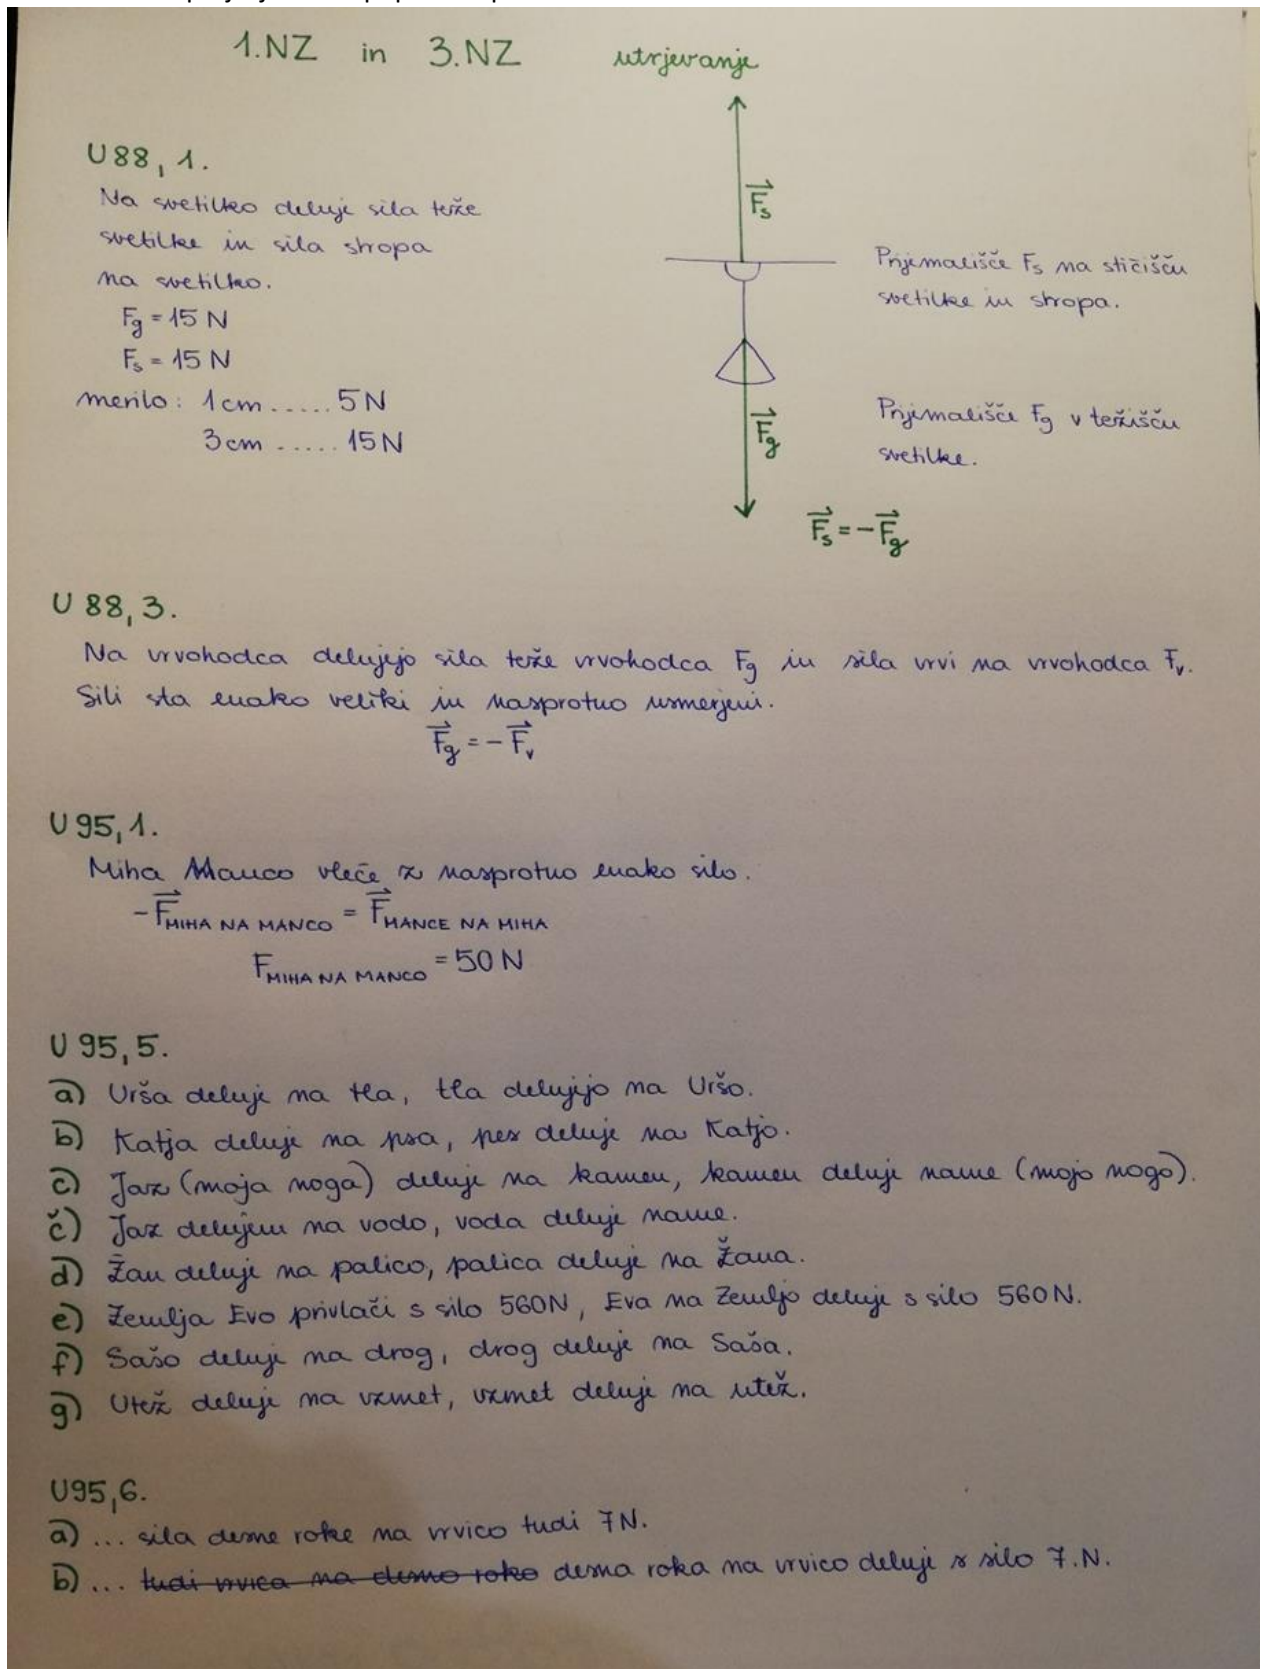 1.NZ in 3.NZ utrjevanje
U 88, 1.
Na svetilko deluje sila teže
svetilke in sila stropa
na svetilko.
Fg = 15 N
Fs = 15 N
merilo: 1cm ..... 5N
3cm ..... 15N
Fs
Prijemališče Fs na stičišču
svetilke in stropa.
Fg
Prijemališče Fg v težišču
svetilke.
Fs = -Fg
U 88, 3.
Na vrvohodca delujejo sila teže vrvohodca Fg in sila vrvi na vrvohodca Fv.
Sili sta enako veliki in nasprotno usmerjeni.
Fg = -Fv
U 95, 1.
Miha Manco vleče z nasprotno enako silo.
-F MIHA NA MANCO = F MANCE NA MIHA
F MIHA NA MANCO = 50 N
U 95, 5.
a) Urša deluje na tla, tla delujejo na Uršo.
b) Katja deluje na psa, pes deluje na Katjo.
c) Jaz (moja noga) deluje na kamen, kamen deluje name (mojo nogo).
č) Jaz delujem na vodo, voda deluje name.
d) Žan deluje na palico, palica deluje na Žana.
e) Zemlja Evo privlači s silo 560N, Eva na Zemljo deluje s silo 560N.
f) Sašo deluje na drog, drog deluje na Saša.
g) Utež deluje na vzmet, vzmet deluje na utež.
U95,6.
a) ... sila desne roke na vrvico tudi 7N.
b) ... tudi vrvica na desno roko desna roka na vrvico deluje s silo 7.N.